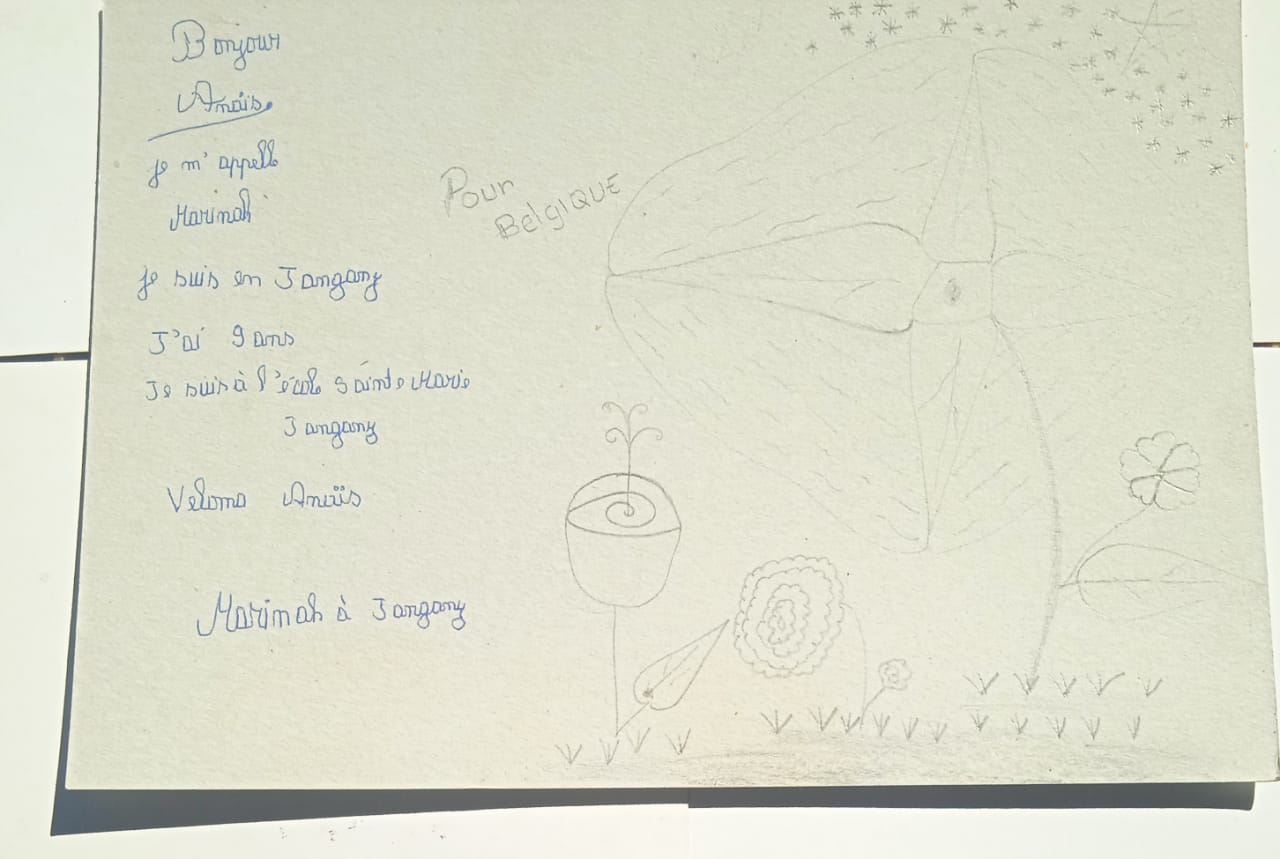 Bonjour
Anaïs
je m'appelle
Marinah
je suis en Jangany
J'ai 9 ans
Je suis à l'école Sainte Marie
Jangany
Veloma Anaïs
Marinah à Jangany
Pour
BelgIQUE